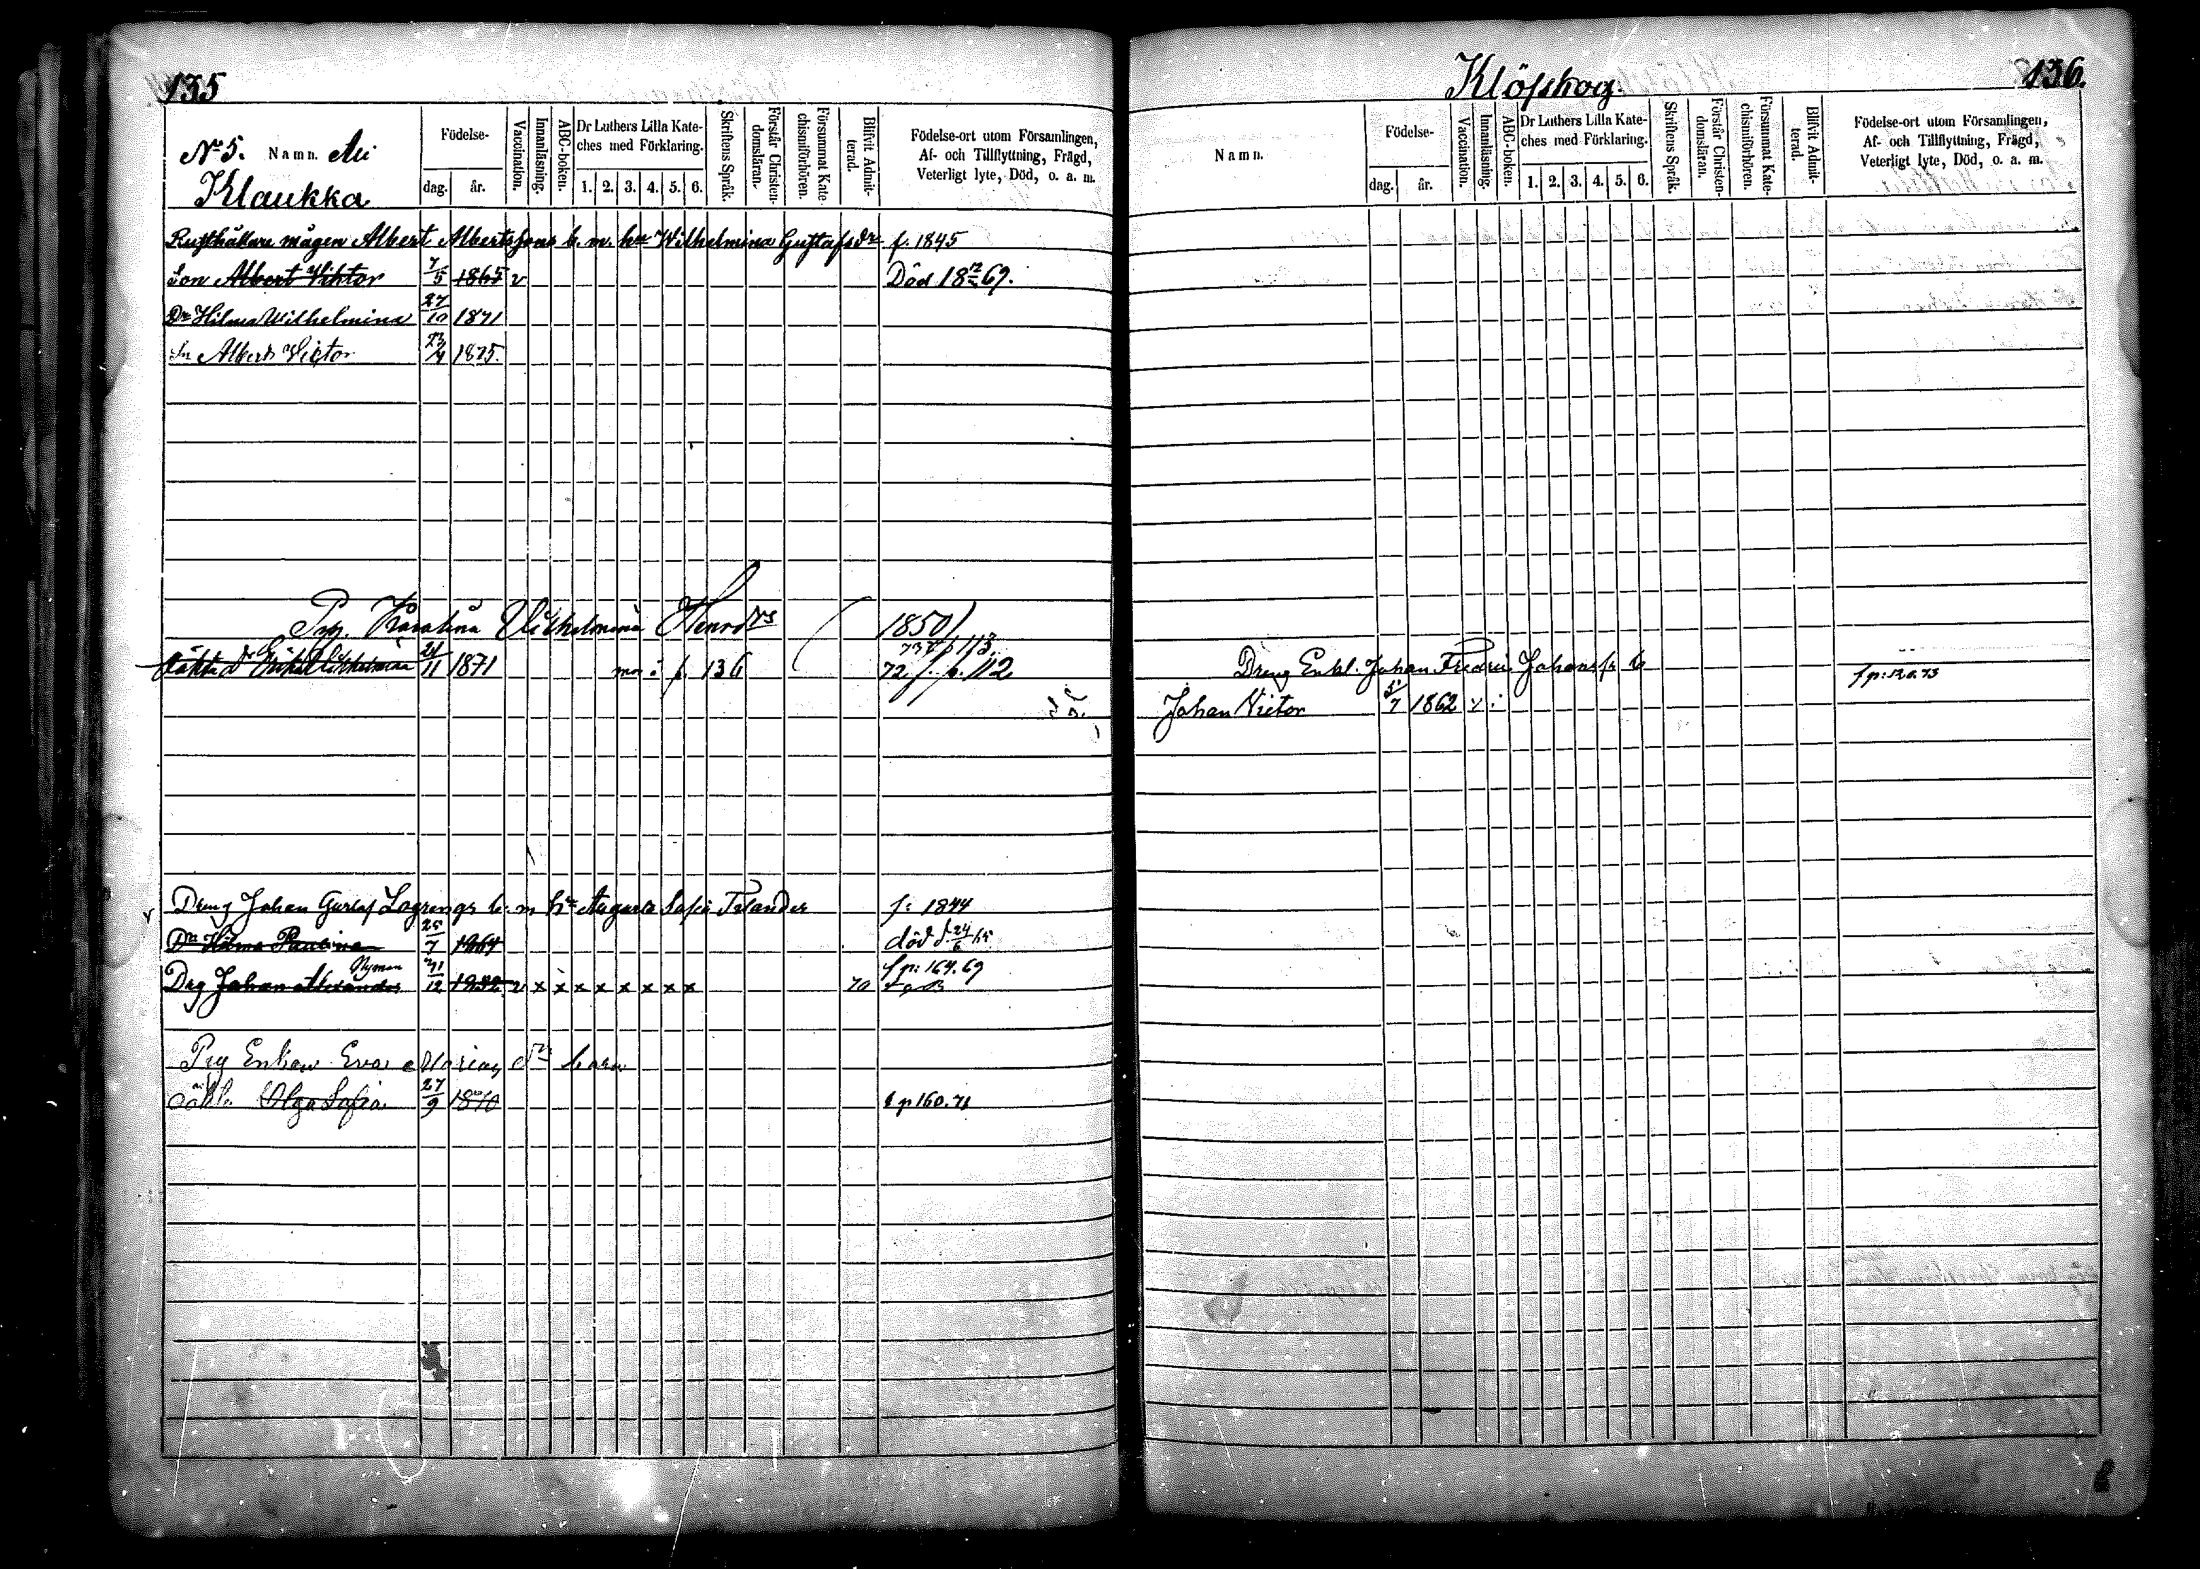 135
No 5. Namn. Ali
Klaukka
Födelse-
dag.
år.
Vaccination.
Innanläsning.
ABC-boken.
Dr Luthers Lilla Kate-
ches med Förklaring.
1. 2. 3. 4. 5. 6.
Skriftens Språk.
Förstår Christen-
domsläran.
Försummat Kate-
chismiförhören.
Blifvit Admit-
terad.
Födelse-ort utom Församlingen,
Af- och Tillflyttning, Frägd,
Veterligt lyte, Död, o. a. m.
Rusthållare mågen Albert Albertssons b. m. hu Wilhelmina Gustafsdr f. 1845
Son Albert Viktor 7/5 1865 v Död 18 69.
Dr Hilma Wilhelmina 27/10 1871
Sn Albert Victor 23/4 1875.
Pig. Karolina Wilhelmina Henrdrs (1850)
73 f. p 113.
oäkta dr Wilhelmina 24/11 1871 mor i p. 136 72 f. p. 112
Dreng Johan Gustaf Lagrengs b. m hu Augusta Sofia Telander f. 1844
Dr Hilma Paulina 25/7 1864 död d 24/6 65
Nyman f p: 164. 69
Drg Johan Alexander 21/12 1852 v x x x x x x x x 70
Pig Enkan Eva Marias dr barn
oäkta Olga Sofia 27/9 1870 f p 160. 71
Klöfskog.
136.
Namn.
Födelse-
dag.
år.
Vaccination.
Innanläsning.
ABC-boken.
Dr Luthers Lilla Kate-
ches med Förklaring.
1. 2. 3. 4. 5. 6.
Skriftens Språk.
Förstår Christen-
domsläran.
Försummat Kate-
chismiförhören.
Blifvit Admit-
terad.
Födelse-ort utom Församlingen,
Af- och Tillflyttning, Frägd,
Veterligt lyte, Död, o. a. m.
Dreng Enkl. Johan Fredric Johans fr b f p: 120. 73
Johan Victor 5/7 1862 v